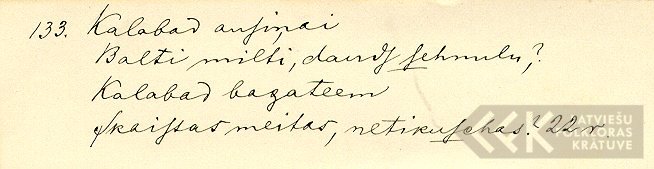 133. Kalabad ausiņai
Balti milti, daudſ ſehnulu,?
Kalabad bagateem
ſkaiſtas meitas, netikuſchas? 22 r.
LATVIEŠU
FOLKLORAS
KRĀTUVE